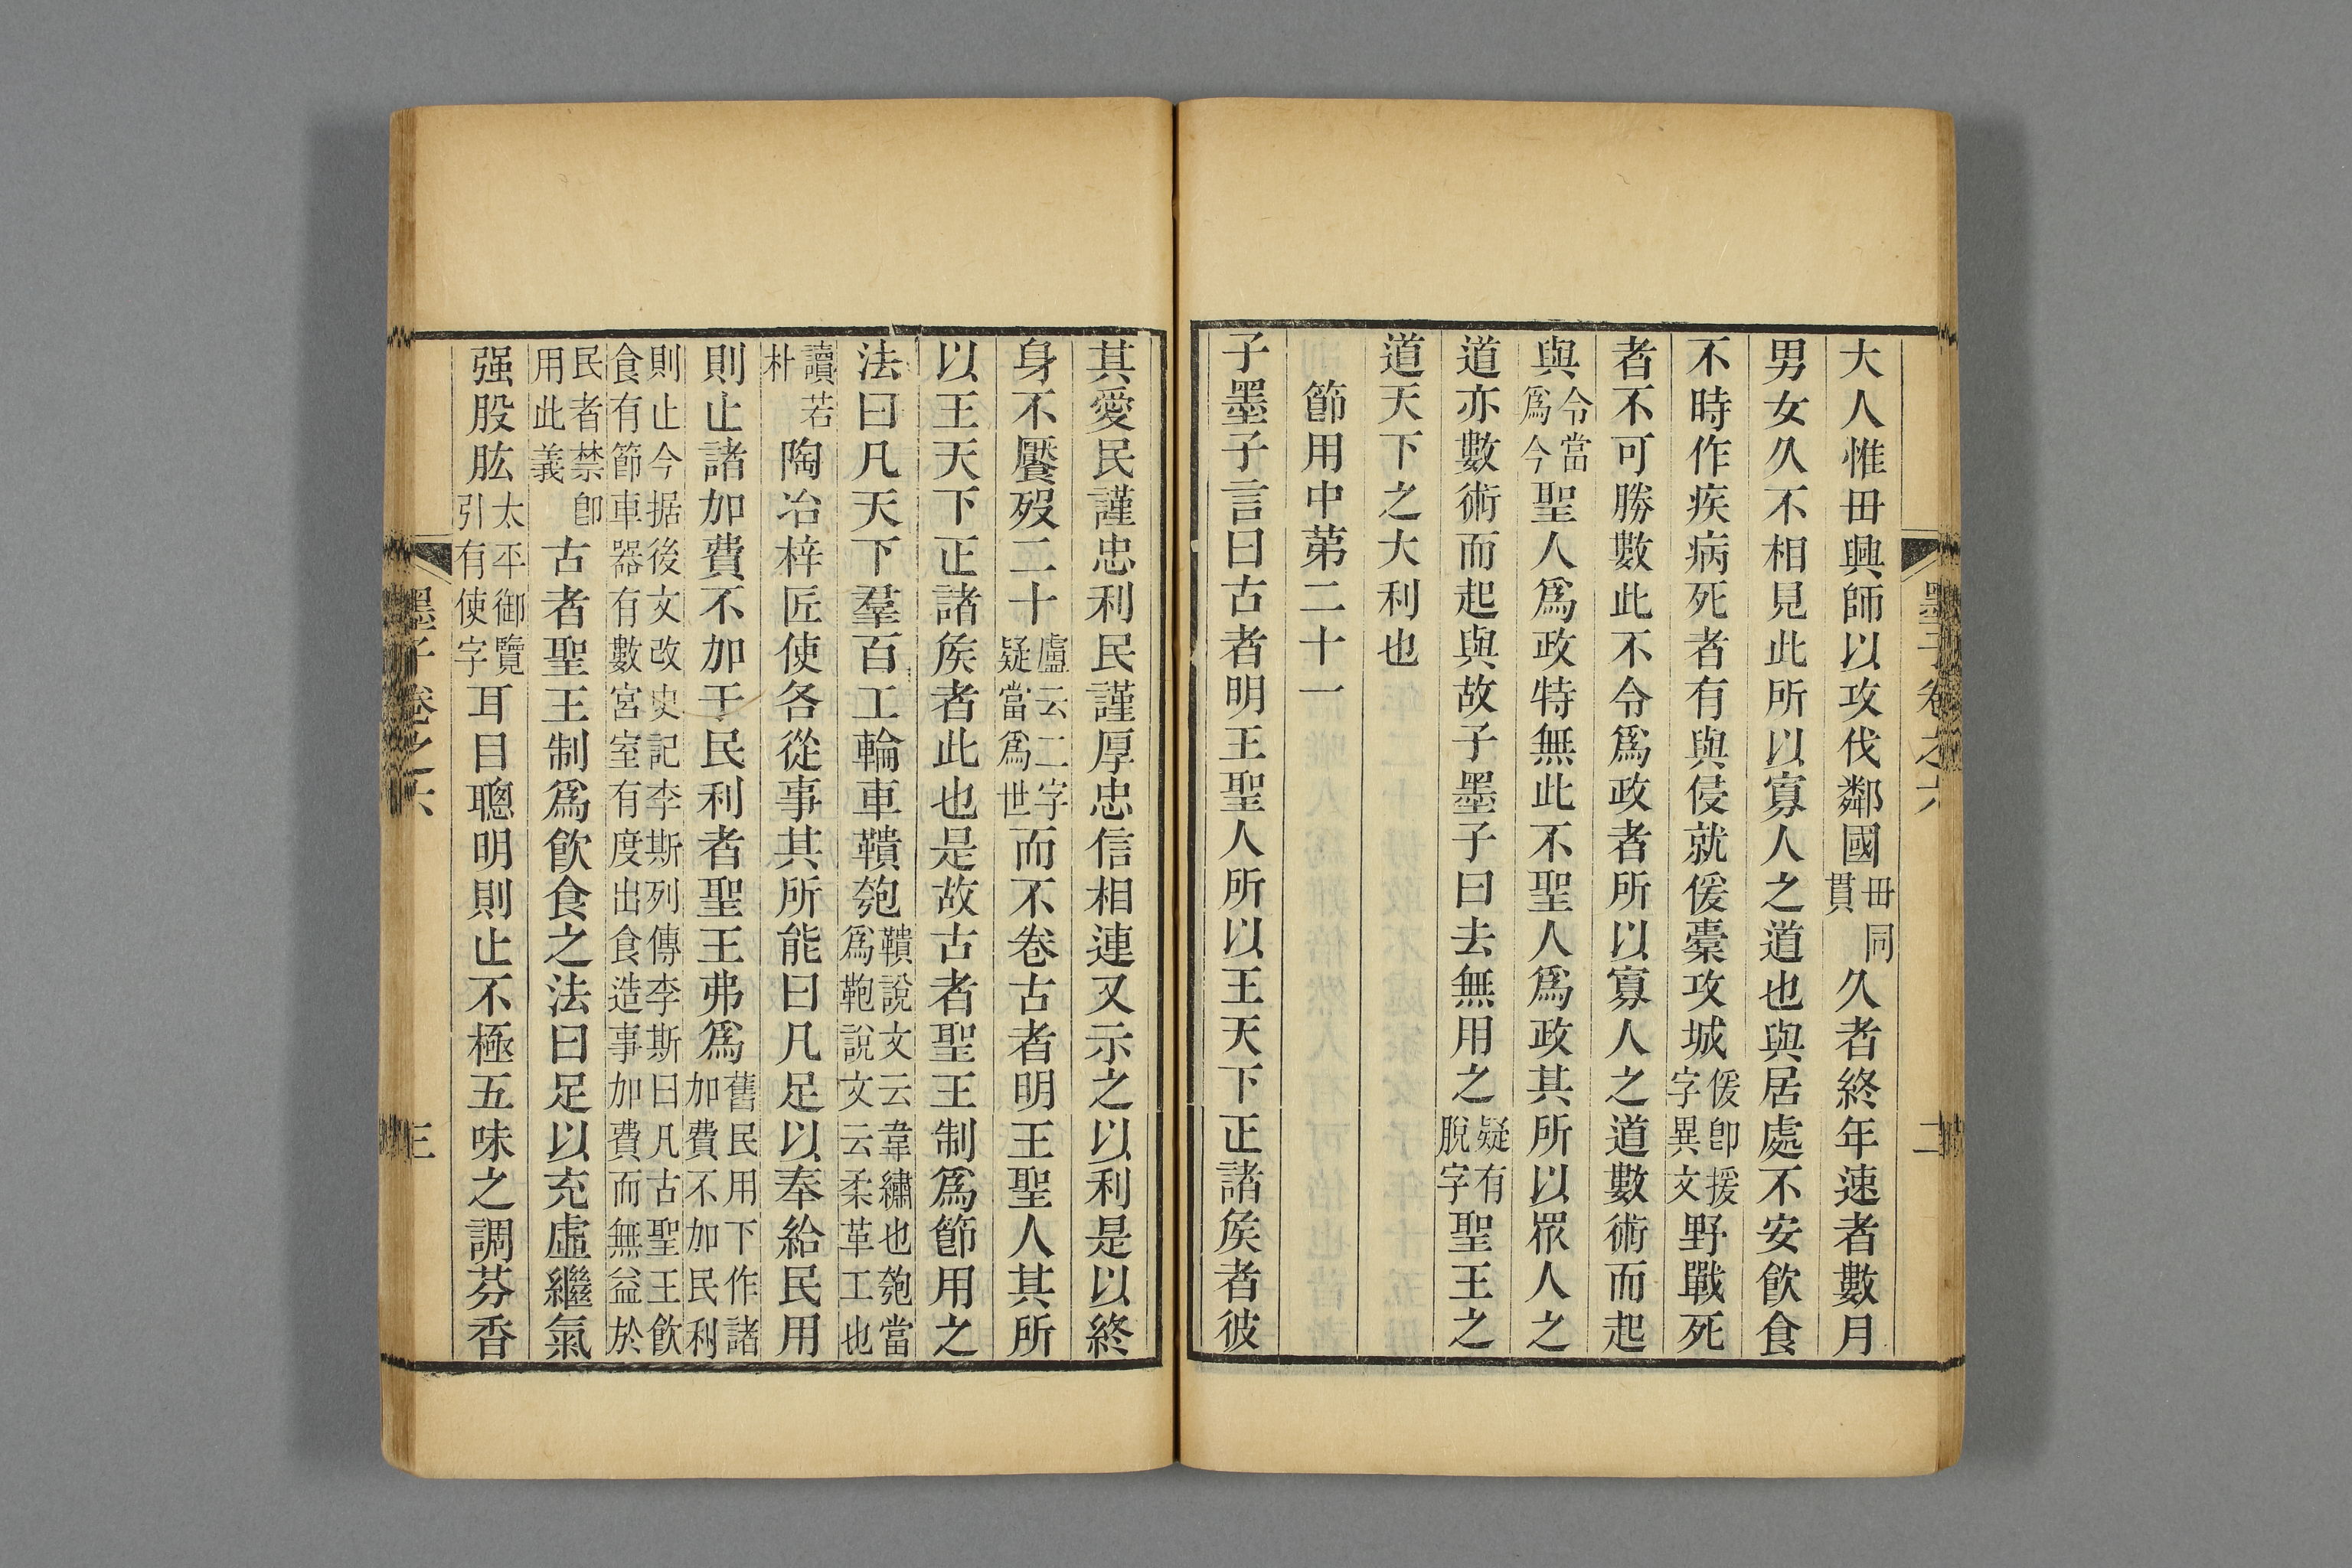 墨子卷之六 二
大人惟毌興師以攻伐鄰國毌同貫久者終年速者數月
男女久不相見此所以寡人之道也與居處不安飮食
不時作疾病死者有與侵就偄橐攻城偄卽援字異文野戰死
者不可勝數此不令爲政者所以寡人之道數術而起
與令當爲今聖人爲政特無此不聖人爲政其所以眾人之
道亦數術而起與故子墨子曰去無用之疑有脫字聖王之
道天下之大利也
節用中第二十一
子墨子言曰古者明王聖人所以王天下正諸矦者彼
其愛民謹忠利民謹厚忠信相連又示之以利是以終
身不饜歿二十盧云二字疑當爲世而不卷古者明王聖人其所
以王天下正諸矦者此也是故古者聖王制爲節用之
法曰凡天下羣百工輪車鞼匏鞼說文云韋繡也匏當爲鞄說文云柔革工也
讀若朴陶冶梓匠使各從事其所能曰凡足以奉給民用
則止諸加費不加于民利者聖王弗爲舊民用下作諸加費不加民利
則止今据後文改史記李斯列傳李斯曰凡古聖王飮食有節車器有數宮室有度出食造事加費而無益於
民者禁卽用此義古者聖王制爲飮食之法曰足以充虛繼氣
强股肱太平御覽引有使字耳目聰明則止不極五味之調芬香
墨子卷之六 三